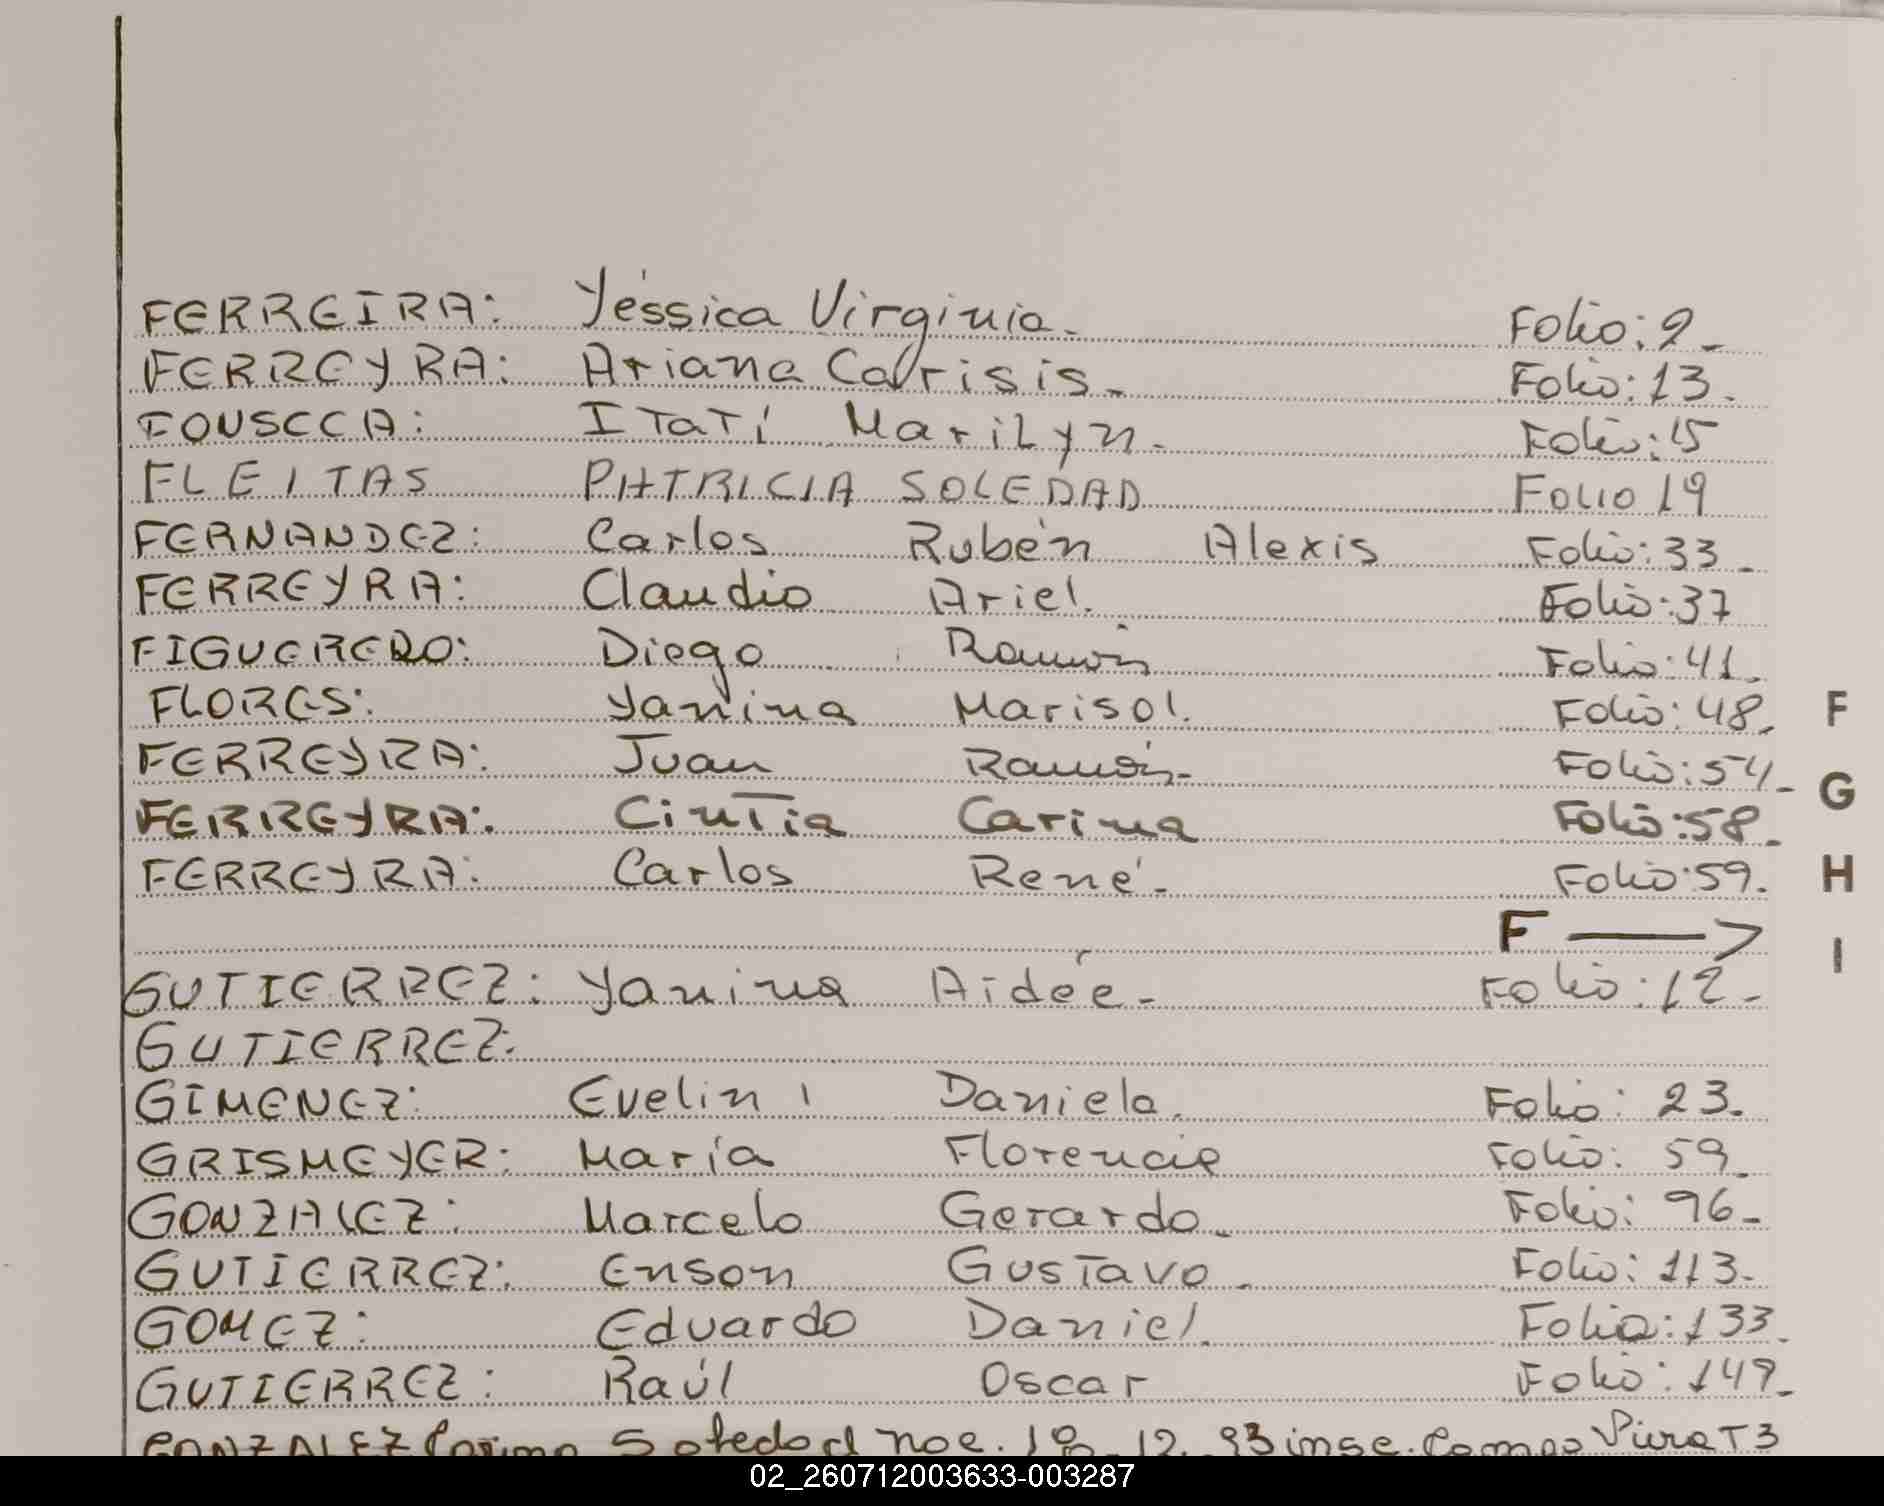 FERREIRA: Yéssica Virginia. Folio: 2_
FERREYRA: Ariana Carisis. Folio: 13.
FONSECA: ITaTí MariLyn. Folio: 15
FLEITAS PATRICIA SOLEDAD FOLIO 19
FERNANDEZ: Carlos Rubén Alexis Folio: 33_
FERREYRA: Claudio Ariel. Folio: 37
FIGUEREDO: Diego Ramón Folio: 41_
FLORES: Yanina Marisol. Folio: 48_
FERREYRA: Juan Ramón. Folio: 54_
FERREYRA: CinTia Carina Folio: 58_
FERREYRA: Carlos René. Folio: 59.
F →
GUTIERREZ: Yanina Aidée. Folio: 12_
GUTIERREZ:
GIMENEZ: Evelin Daniela. Folio: 23.
GRISMEYER: María Florencia Folio: 59_
GONZALEZ: Marcelo Gerardo_ Folio: 96_
GUTIERREZ: Enson GusTavo_ Folio: 113.
GOMEZ: Eduardo Daniel. Folio: 133_
GUTIERREZ: Raúl Oscar Folio: 149_
GONZALEZ Soledad T3
F
G
H
I
02_260712003633-003287